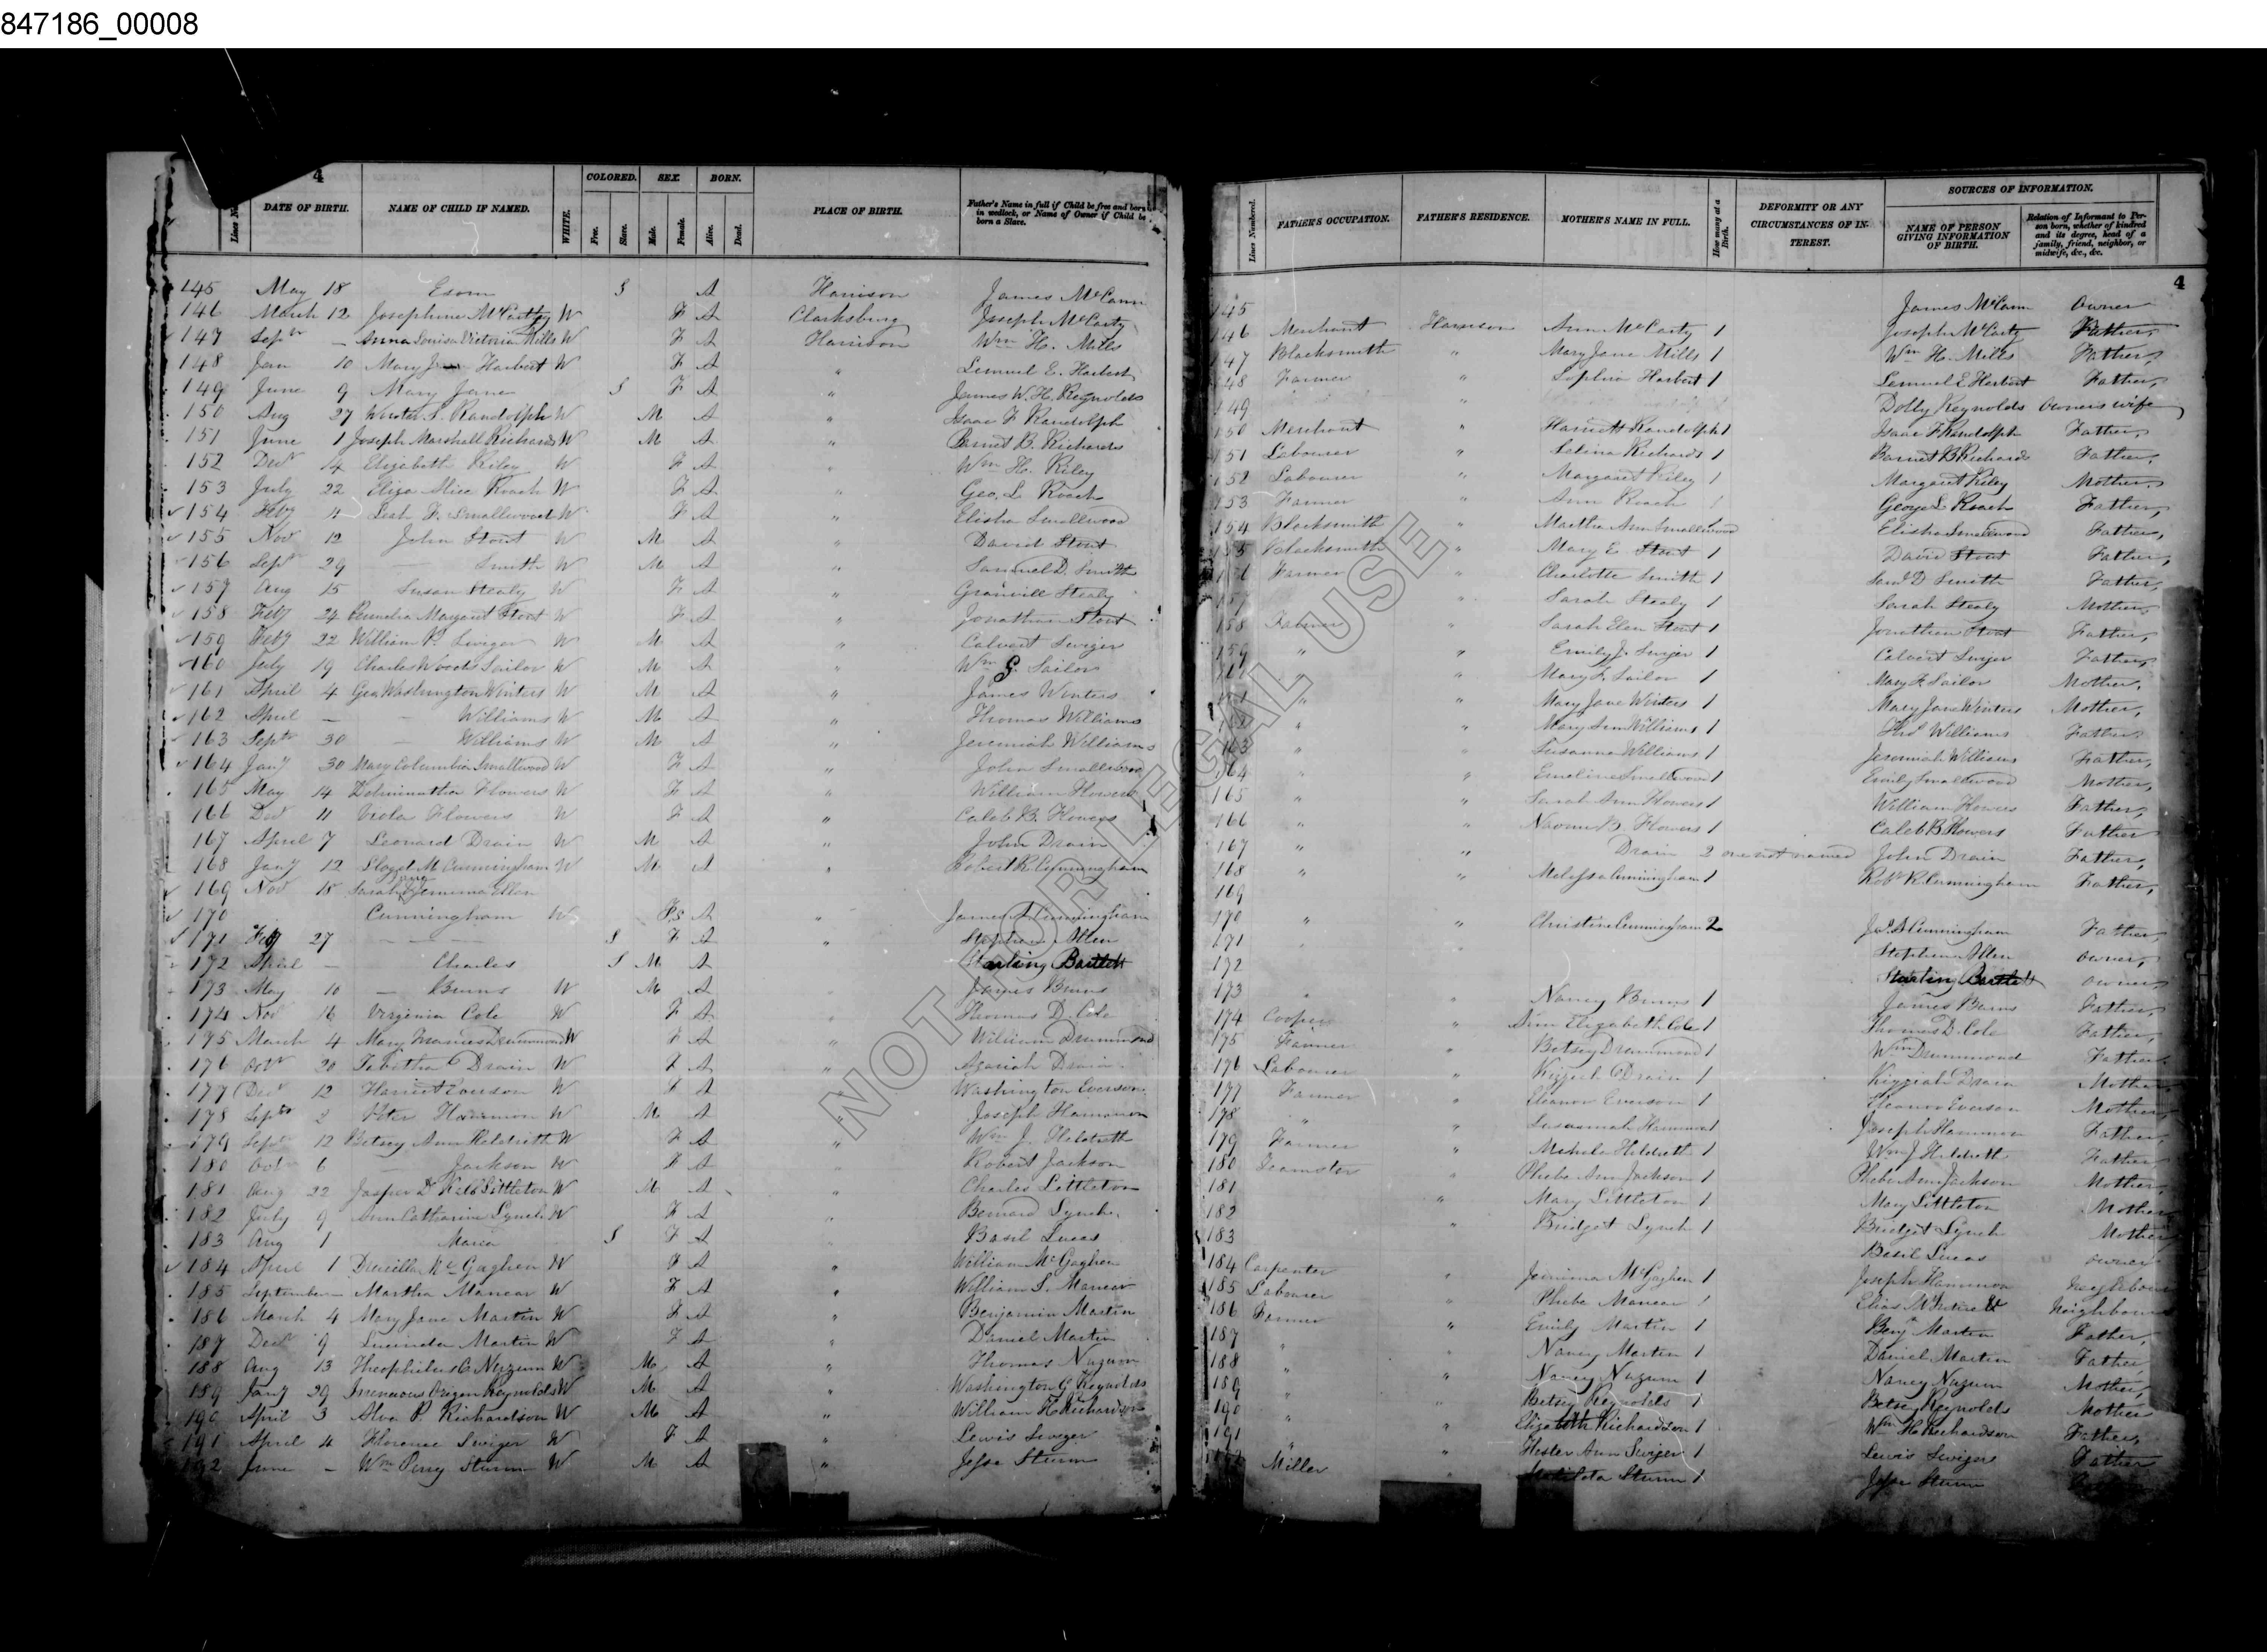 847186_00008
4
Lines N
DATE OF BIRTH.
NAME OF CHILD IF NAMED.
WHITE.
COLORED.
Free.
Slave.
SEX.
Male.
Female.
BORN.
Alive.
Dead.
PLACE OF BIRTH.
Father's Name in full if Child be free and born
in wedlock, or Name of Owner if Child be
born a Slave.
145 May 18 Esom S A Harrison James McCann
146 March 12 Josephine McCarty W F A Clarksburg Joseph McCarty
147 Septr — Anna Louisa Victoria Mills W F A Harrison Wm H. Mills
148 Jan 10 Mary Harbert W F A " Lemuel E. Harbert
149 June 9 Mary Jane S F A " James W. H. Reynolds
150 Aug 27 F. Randolph W M A " Isaac F Randolph
151 June 1 Joseph Marshall Richards W M A " Barnet B. Richards
152 Decr 14 Elizabeth Riley W F A " Wm H. Riley
153 July 22 Eliza Alice Roach W F A " Geo. L Roach
154 Feby 4 F. Smallwood W F A " Elisha Smallwood
155 Nov 12 John Stout W M A " David Stout
156 Septr 29 — Smith W M A " Samuel D. Smith
157 Aug 15 Susan Stealy W F A " Granvill Stealy
158 Feby 24 Margaret Stout W F A " Jonathan Stout
159 Feby 22 William Swiger W M A " Calvert Swiger
160 July 19 Charles Woods Sailor W M A " Wm S. Sailor
161 April 4 Geo Washington Winters W M A " James Winters
162 April — — Williams W M A " Thomas Williams
163 Septr 30 — Williams W M A " Jeremiah Williams
164 Jany 30 Mary Columbia Smallwood W F A " John Smallwood
165 May 14 Flowers W F A " William Flowers
166 Decr 11 Viola Flowers W F A " Caleb B. Flowers
167 April 7 Leonard Drain W M A " John Drain
168 Jany 12 M Cunningham W M A " Robert R. Cunningham
169 Nov 18 Sarah Jane & Jemima Ellen
170 Cunningham W F.s A " James A Cunningham
171 Feby 27 — — — S F A " Stephen Allen
172 April — Charles S M A Starling Bartlett
173 May 10 — Burns W M A James Burns
174 Nov 16 Virginia Cole W F A Thomas D. Cole
175 March 4 Mary Frances Drummond W F A " William Drummond
176 Octr 20 Tabitha Drain W F A " Azariah Drain
177 Decr 12 Harriet Everson W F A Washington Everson
178 Septr 2 Peter Hammon W M A " Joseph Hammon
179 Septr 12 Betsey Ann Hildreth W F A " Wm J. Hildreth
180 Octr 6 — Jackson W F A Robert Jackson
181 Aug 22 Jasper D Kalb Littleton W M A " Charles Littleton
182 July 9 Ann Catharine Lynch W F A Bernard Lynch
183 Aug 1 Maria S F A Basil Lucas
184 April 1 McGaghen W F A " William McGaghen
185 September — Martha Manear W F A " William S. Manear
186 March 4 Mary Jane Martin W F A " Benjamin Martin
187 Decr 9 Lucinda Martin W F A " Daniel Martin
188 Aug 13 Theophilus C Nuzum W M A " Thomas Nuzum
189 Jany 29 Oregon Reynolds W M A " Washington G Reynolds
190 April 3 Alva P. Richardson W M A " William H Richardson
191 April 4 Florence Swiger W F A " Lewis Swiger
192 June — Wm Perry Sturm W M A " Jesse Sturm
Lines Numbered.
FATHER'S OCCUPATION.
FATHER'S RESIDENCE.
MOTHER'S NAME IN FULL.
How many at a
Birth.
DEFORMITY OR ANY
CIRCUMSTANCES OF IN-
TEREST.
SOURCES OF INFORMATION.
NAME OF PERSON
GIVING INFORMATION
OF BIRTH.
Relation of Informant to Per-
son born, whether of kindred
and its degree, head of a
family, friend, neighbor, or
midwife, &c., &c.
4
145 James McCann Owner
146 Merchant Harrison Ann McCarty 1 Joseph McCarty Father,
147 Blacksmith " Mary Jane Mills 1 Wm H. Mills Father,
148 Farmer " Sophia Harbert 1 Lemuel E Herbert Father,
149 " Dolly Reynolds Owners wife
150 Merchant " Harriett Randolph 1 Isaac F Randolph Father,
151 Labourer " Selina Richards 1 Barnet B Richards Father,
152 Labourer " Margaret Riley 1 Margaret Riley Mother,
153 Farmer " Ann Roach 1 George L Roach Father,
154 Blacksmith " Martha Ann Smallwood Elisha Smallwood Father,
155 Blacksmith " Mary E Stout 1 David Stout Father,
156 Farmer " Charlotte Smith 1 Saml D Smith Father,
157 " Sarah Stealy 1 Sarah Stealy Mother,
158 Farmer " Sarah Elen Stout 1 Jonathan Stout Father,
159 " " Emily J. Swiger 1 Calvert Swiger Father,
" " Mary F. Sailor 1 Mary F. Sailor Mother,
" " Mary Jane Winters 1 Mary Jane Winters Mother,
" " Mary Ann Williams 1 Thos Williams Father,
163 " " Susanna Williams 1 Jeremiah Williams Father,
164 " " Emeline Smallwood 1 Emily Smallwood Mother,
165 " " Sarah Ann Flowers 1 William Flowers Father,
166 " " Naomi B. Flowers 1 Caleb B Flowers Father
167 " " Drain 2 one not named John Drain Father,
168 " " Melissa Cunningham 1 Robt R Cunningham Father,
169
170 " " Christine Cunningham 2 Js A Cunningham Father,
171 Stephen Allen owner,
172 Starling Bartlett owner
173 " " Nancy Burns 1 James Burns Father,
174 Cooper " Ann Elizabeth Cole 1 Thomas D. Cole Father,
175 Farmer " Betsey Drummond 1 Wm Drummond Father
176 Labourer " Kizziah Drain 1 Kizziah Drain Mother
177 Farmer " Eleanor Everson 1 Eleanor Everson Mother,
178 " " Susannah Hammon 1 Joseph Hammon Father,
179 Farmer " Hildreth 1 Wm J Hildreth Father,
180 Teamster " Phebe Ann Jackson 1 Phebe Ann Jackson Mother,
181 " Mary Littleton 1 Mary Littleton Mother
182 " Bridget Lynch 1 Bridget Lynch Mother
183 Basil Lucas owner
184 Carpenter " Jemima McGaghen 1 Joseph Hammon Neighbour
185 Labourer Phebe Manear 1 Elias Neighbour
186 Farmer " Emily Martin 1 Benj Martin Father,
187 " " Nancy Martin 1 Daniel Martin Father
188 " " Nancy Nuzum 1 Nancy Nuzum Mother,
189 " " Betsey Reynolds 1 Betsey Reynolds Mother
190 " " Elizabeth Richardson 1 Wm H Richardson Father,
191 " " Hester Ann Swiger 1 Lewis Swiger Father
Miller Sturm 1 Jesse Sturm
NOT FOR LEGAL USE